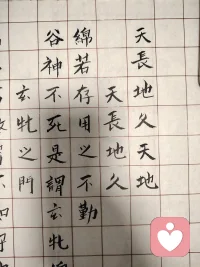 天長地久天地
天長地久
綿若存用之不勤
谷神不死是謂玄牝
玄牝之門